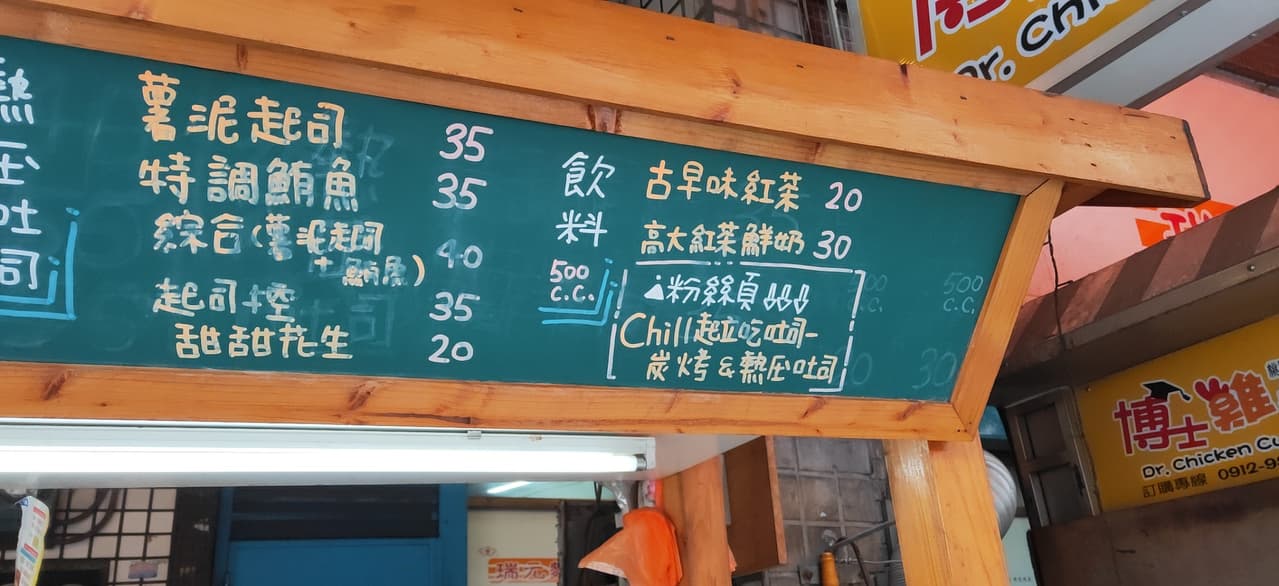 熱
压
吐
司
薯泥起司 35
特調鮪魚 35
綜合(薯泥起司 40
+鮪魚)
起司控 35
甜甜花生 20
飲
料
500
c.c.
古早味紅茶 20
高大紅茶鮮奶 30
粉絲頁↓↓↓
Chill起立吃吐司-
炭烤&熱压吐司
500
C.C.
30
Dr. Chi
博士雞
Dr. Chicken Cu
訂購專線 0912-9